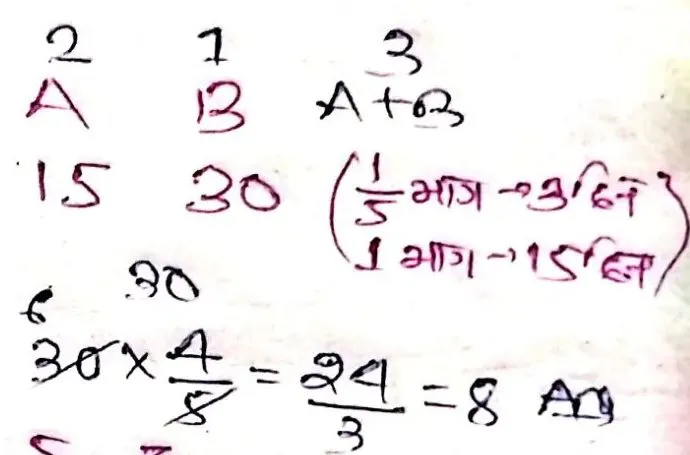 2 1 3
A B A+B
15 30 (1/5 भाग → 3 दिन
1 भाग → 15 दिन)
30
6
30 × 4/5 = 24/3 = 8 Ans